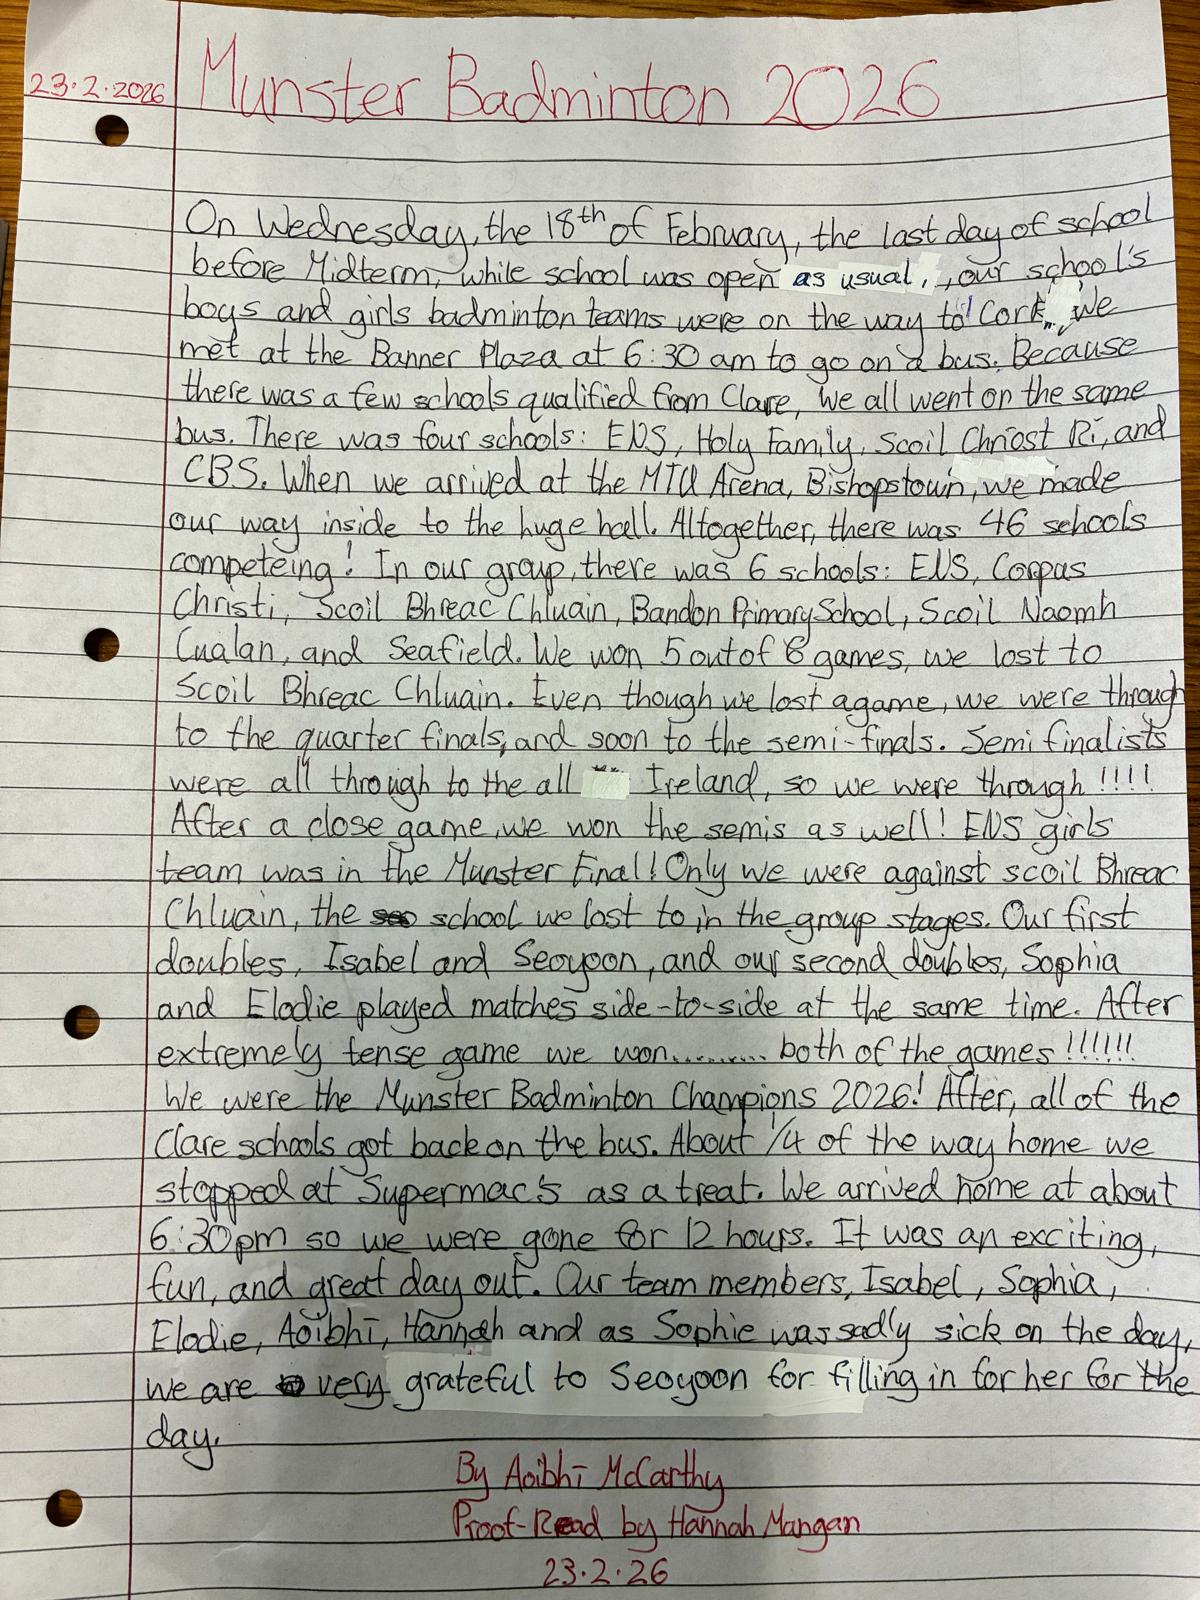 23.2.2026
Munster Badminton 2026
On Wednesday, the 18th of February, the last day of school
before Midterm, while school was open as usual, , our school's
boys and girls badminton teams were on the way to Cork. We
met at the Banner Plaza at 6:30 am to go on a bus. Because
there was a few schools qualified from Clare, we all went on the same
bus. There was four schools: ENS, Holy Family, Scoil Chríost Rí, and
CBS. When we arrived at the MTU Arena, Bishopstown, we made
our way inside to the huge hall. Altogether, there was 46 schools
competeing! In our group, there was 6 schools: ENS, Corpas
Christi, Scoil Bhreac Chluain, Bandon Primary School, Scoil Naomh
Cualan, and Seafield. We won 5 out of 6 games, we lost to
Scoil Bhreac Chluain. Even though we lost a game, we were through
to the quarter finals, and soon to the semi-finals. Semi finalists
were all through to the all Ireland, so we were through!!!!
After a close game, we won the semis as well! ENS girls
team was in the Munster Final! Only we were against scoil Bhreac
Chluain, the school we lost to in the group stages. Our first
doubles, Isabel and Seoyoon, and our second doubles, Sophia
and Elodie played matches side-to-side at the same time. After
extremely tense game we won......... both of the games!!!!!!
We were the Munster Badminton Champions 2026! After, all of the
Clare schools got back on the bus. About 1/4 of the way home we
stopped at Supermac's as a treat. We arrived home at about
6:30pm so we were gone for 12 hours. It was an exciting,
fun, and great day out. Our team members, Isabel, Sophia,
Elodie, Aoibhī, Hannah and as Sophie was sadly sick on the day,
we are very grateful to Seoyoon for filling in for her for the
day.
By Aoibhī McCarthy
Proof-Read by Hannah Mangan
23.2.26